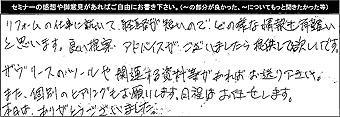 セミナーの感想や御意見があればご自由にお書き下さい。(～の部分が良かった、～についてもっと聞きたかった等)
リフォームの仕事に於いて、経験が短いので、どの様な情報も有難い
と思います。良い提案・アドバイスがございましたら提供して欲しいです。
ザグリースのツールや関連する資料等があればお送り下さい。
また、個別のヒアリングもお願いします。日程はお任せします。
本日は、ありがとうございました。